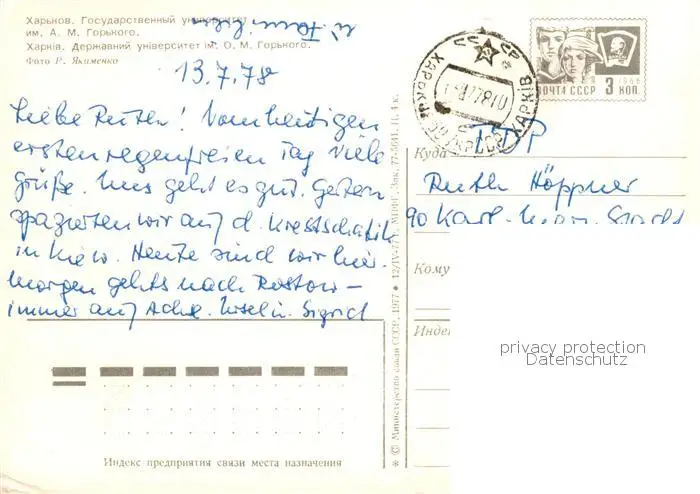 Харьков. Государственный университет
им. А. М. Горького.
Харків. Державний університет ім. О. М. Горького.
Фото Р. Якименко
13.7.78
Liebe Ruth! Vom heutigen
ersten regenfreien Tag viele
Grüße. Uns geht es gut. Gestern
spazierten wir auf d. Krestschatik
in Kiew. Heute sind wir hier.
Morgen gehts nach Rostow –
immer auf Achse. Sigrid
СССР
ХАРЬКОВ
ХАРКІВ
1966
ПОЧТА СССР 3 КОП.
Куда
Ruth Höppner
90 Karl-Marx-Stadt
Кому
Индек
privacy protection
Datenschutz
Индекс предприятия связи места назначения
* © Министерство связи СССР, 1977 • 12/IV-77 г. МПФГ. Зак. 77-5641. Ц. 4 к.